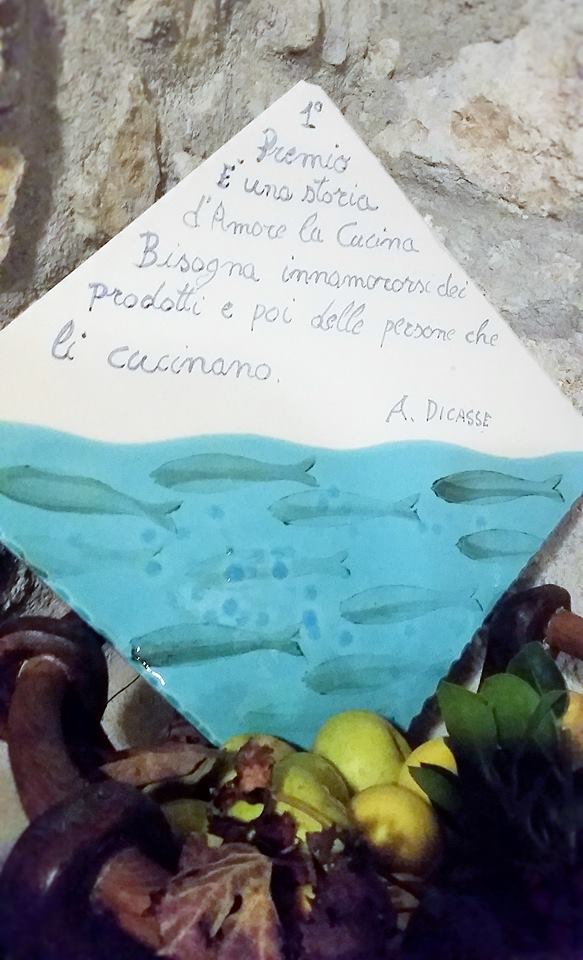 1°
Premio
E' una storia
d'Amore la Cucina
Bisogna innamorarsi dei
prodotti e poi delle persone che
li cucinano.
A. DICASSE